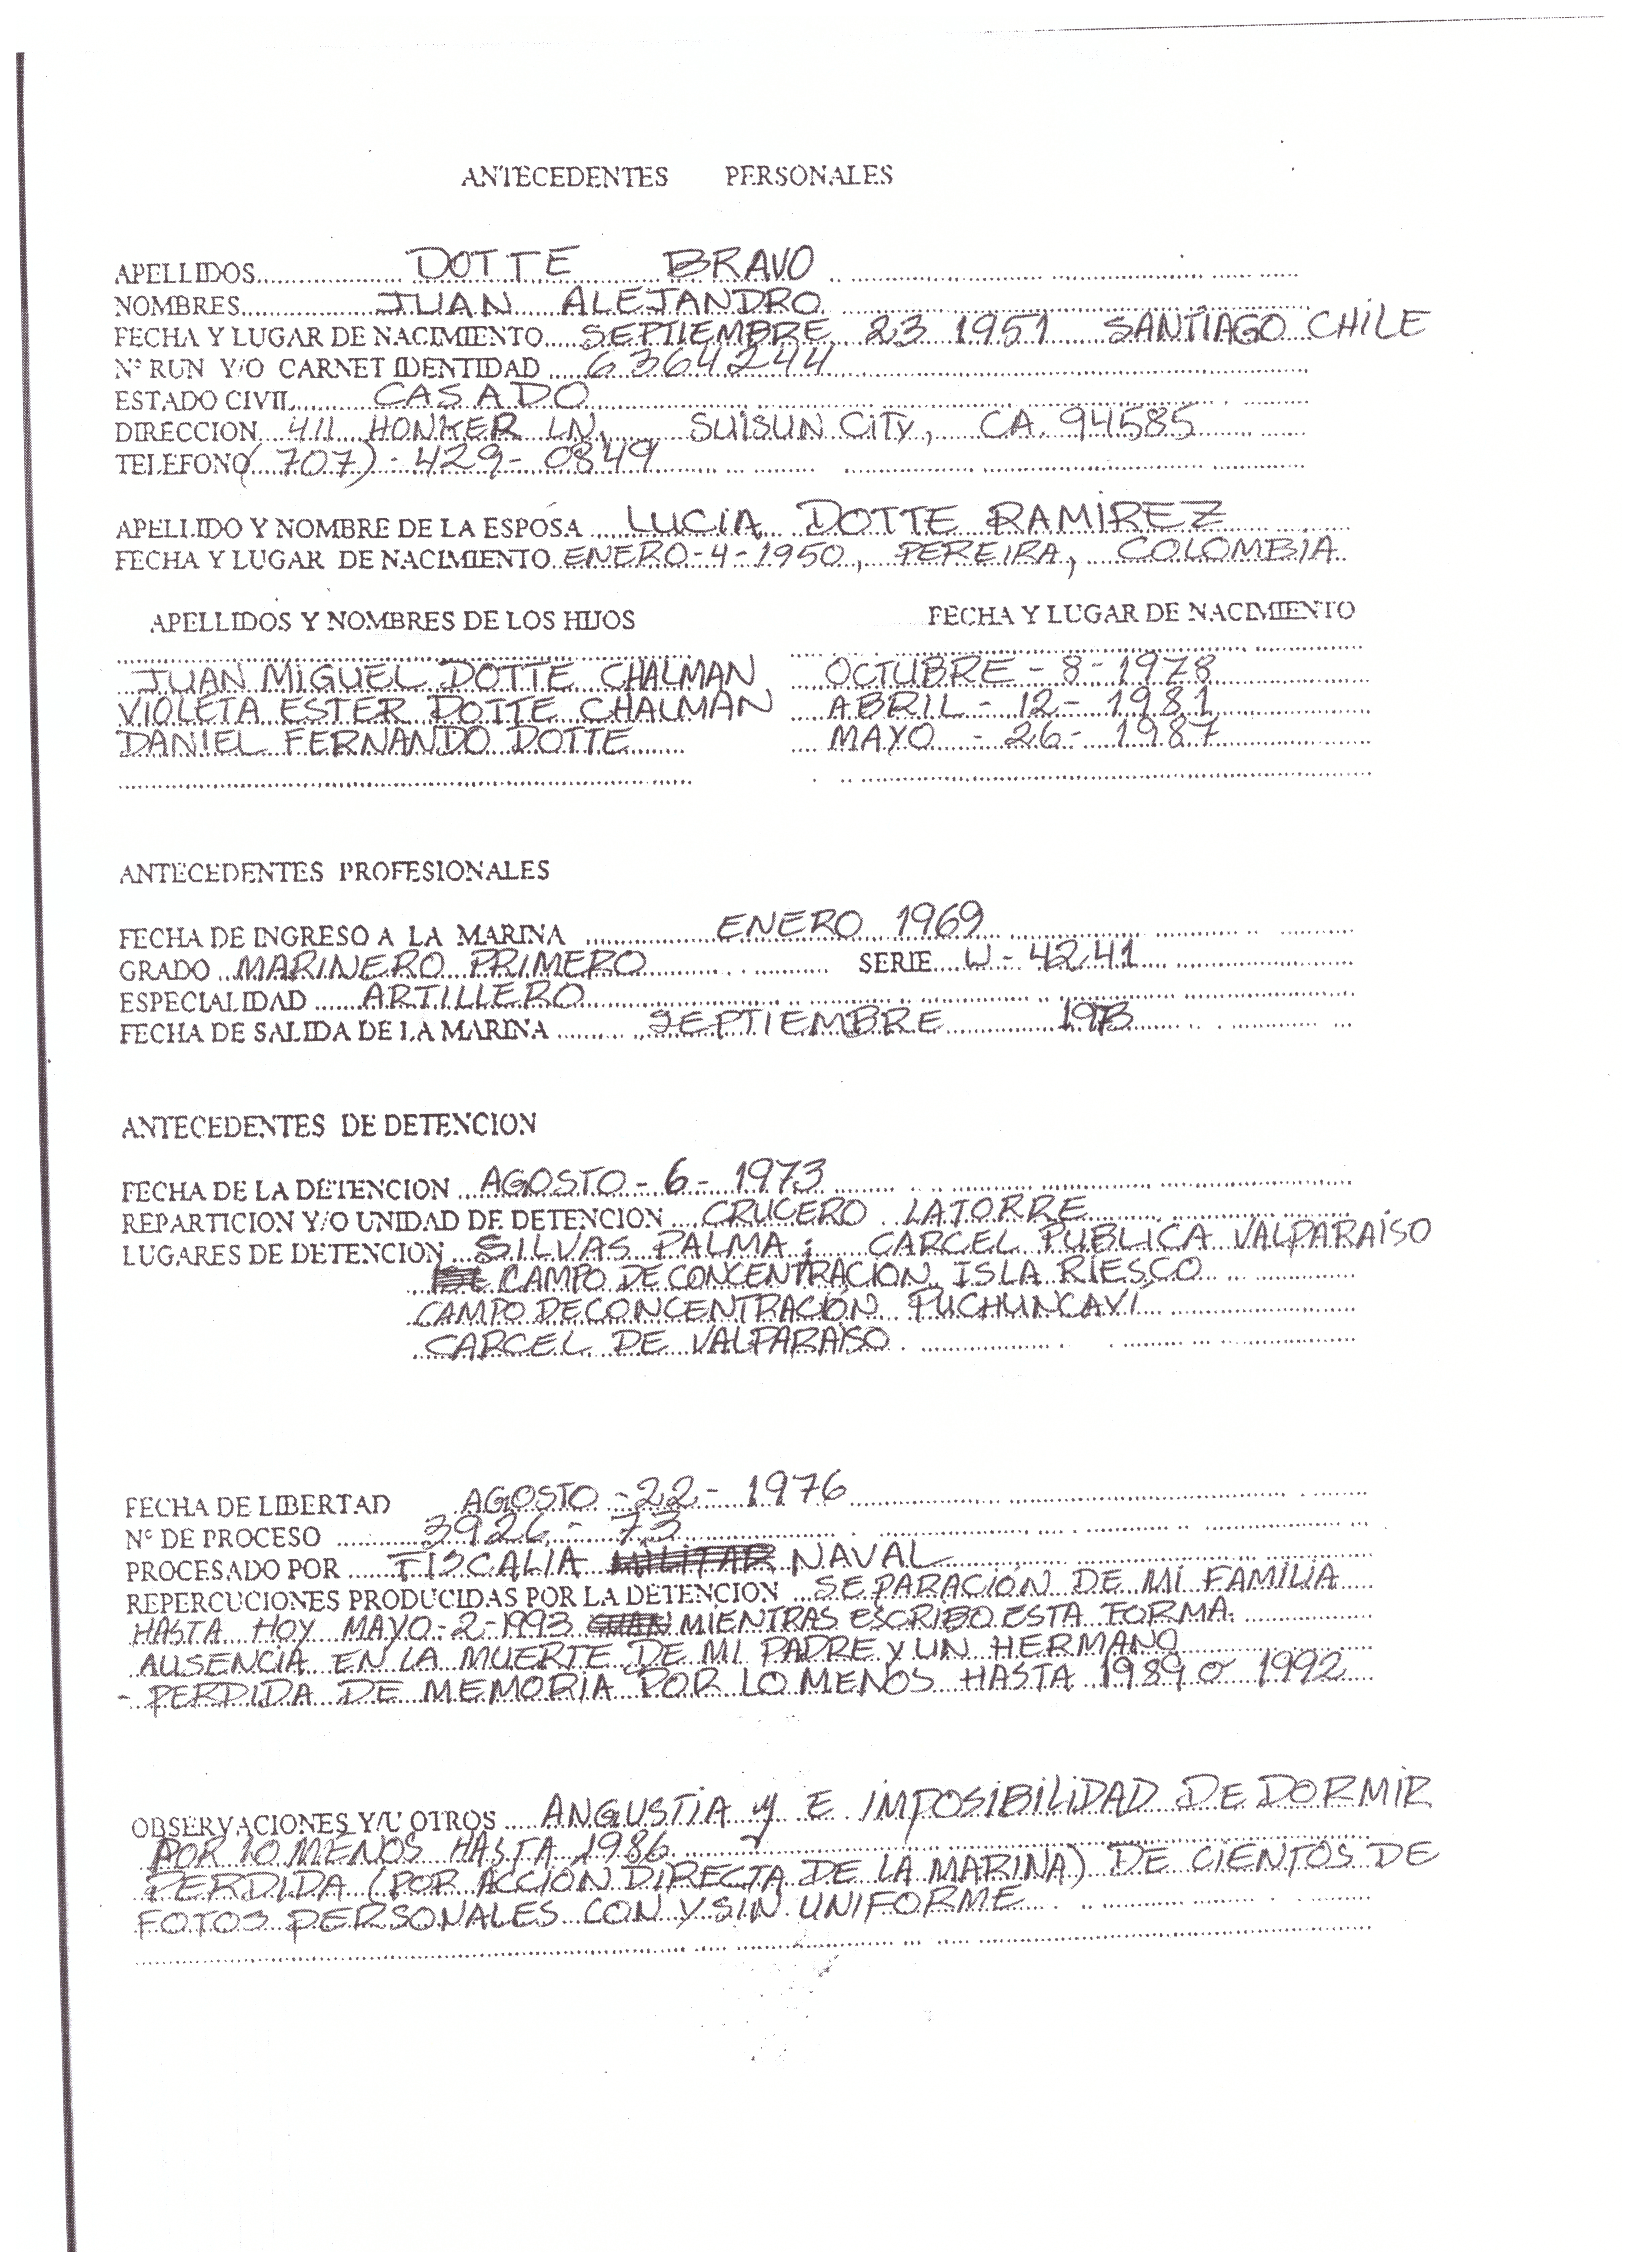 ANTECEDENTES PERSONALES
APELLIDOS DOTTE BRAVO
NOMBRES JUAN ALEJANDRO
FECHA Y LUGAR DE NACIMIENTO SEPTIEMBRE 23 1951 SANTIAGO CHILE
Nº RUN Y/O CARNET IDENTIDAD 6364244
ESTADO CIVIL CASADO
DIRECCION 411 HONKER LN. SUISUN CITY, CA. 94585
TELEFONO (707)-429-0849
APELLIDO Y NOMBRE DE LA ESPOSA LUCIA DOTTE RAMIREZ
FECHA Y LUGAR DE NACIMIENTO ENERO-4-1950, PEREIRA, COLOMBIA
APELLIDOS Y NOMBRES DE LOS HIJOS FECHA Y LUGAR DE NACIMIENTO
JUAN MIGUEL DOTTE CHALMAN OCTUBRE - 8 - 1978
VIOLETA ESTER DOTTE CHALMAN ABRIL - 12 - 1981
DANIEL FERNANDO DOTTE MAYO - 26 - 1987
ANTECEDENTES PROFESIONALES
FECHA DE INGRESO A LA MARINA ENERO 1969
GRADO MARINERO PRIMERO SERIE W-4241
ESPECIALIDAD ARTILLERO
FECHA DE SALIDA DE LA MARINA SEPTIEMBRE 1973
ANTECEDENTES DE DETENCION
FECHA DE LA DETENCION AGOSTO - 6 - 1973
REPARTICION Y/O UNIDAD DE DETENCION CRUCERO LATORRE
LUGARES DE DETENCION SILVAS PALMA; CARCEL PUBLICA VALPARAISO
CAMPO DE CONCENTRACION ISLA RIESCO
CAMPO DE CONCENTRACIÓN PUCHUNCAVÍ
CARCEL DE VALPARAISO
FECHA DE LIBERTAD AGOSTO - 22 - 1976
Nº DE PROCESO 3926 - 73
PROCESADO POR FISCALIA MILITAR NAVAL
REPERCUCIONES PRODUCIDAS POR LA DETENCION SEPARACIÓN DE MI FAMILIA
HASTA HOY MAYO-2-1993 MIENTRAS ESCRIBO ESTA FORMA.
AUSENCIA EN LA MUERTE DE MI PADRE Y UN HERMANO
- PERDIDA DE MEMORIA POR LO MENOS HASTA 1989 O 1992
OBSERVACIONES Y/U OTROS ANGUSTIA y E IMPOSIBILIDAD DE DORMIR
POR LO MENOS HASTA 1986
PERDIDA (POR ACCIÓN DIRECTA DE LA MARINA) DE CIENTOS DE
FOTOS PERSONALES CON Y SIN UNIFORME